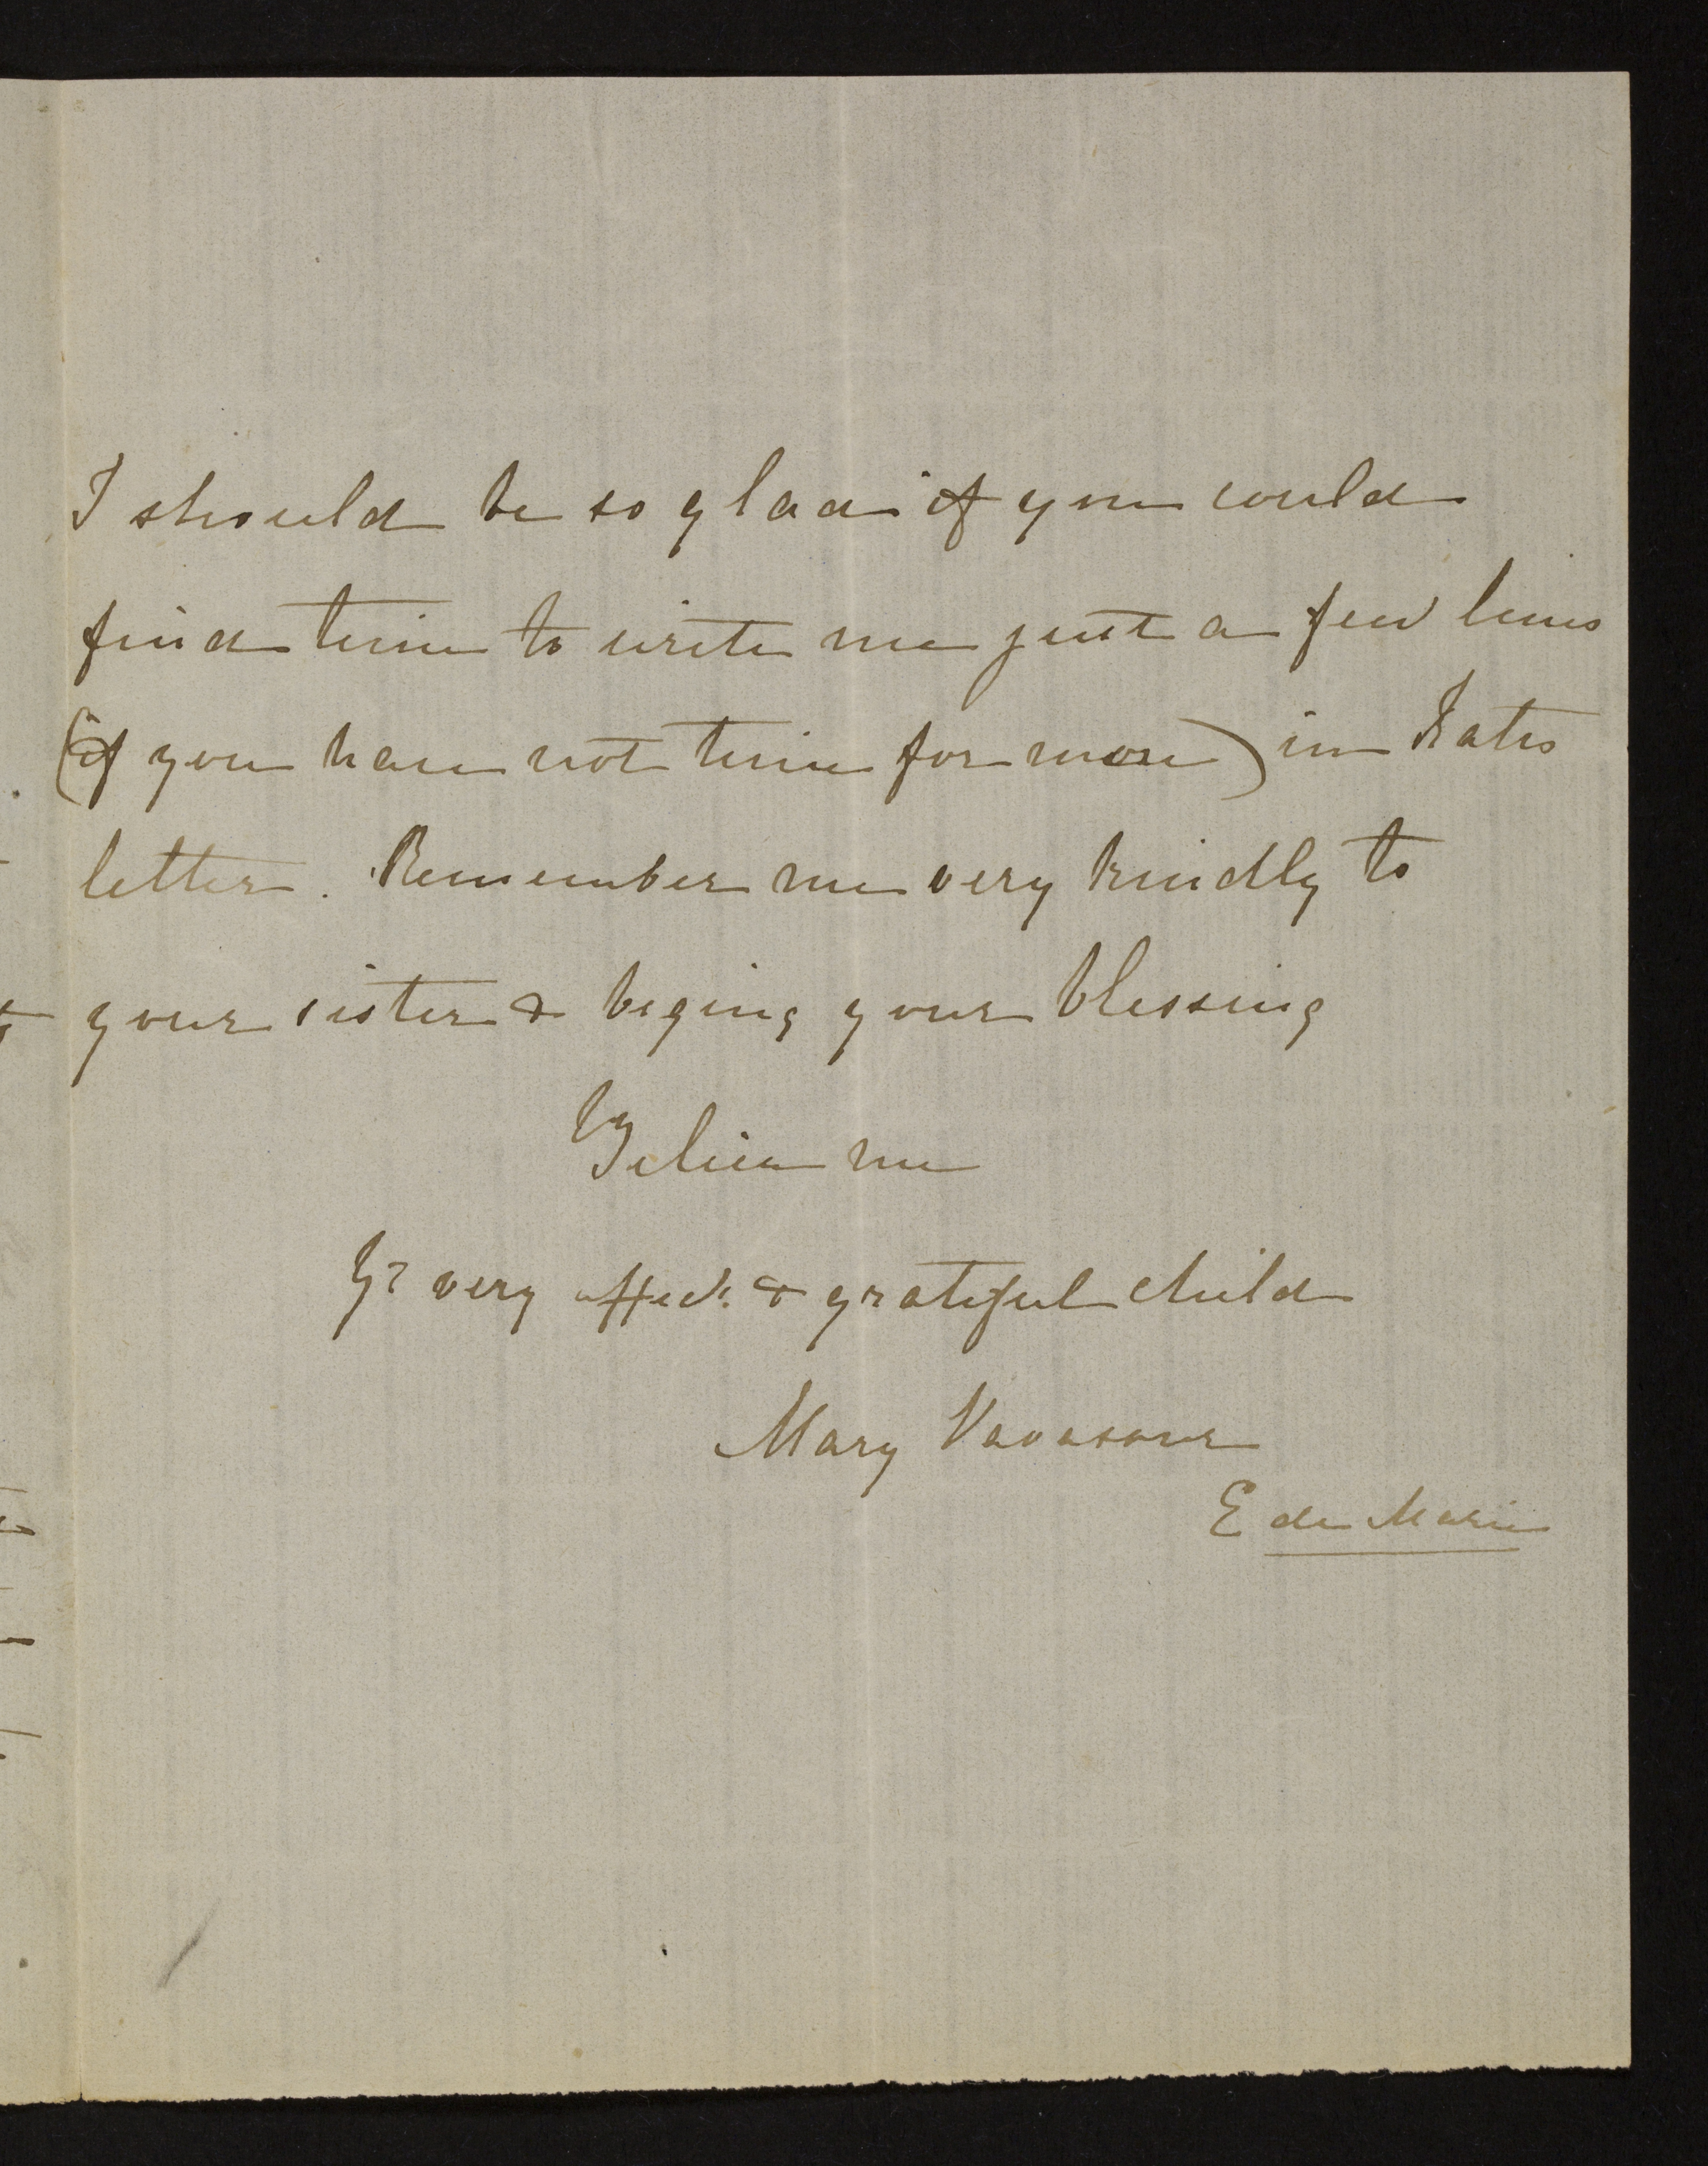 I should be so glad if you could
find time to write me just a few lines
(if you have not time for more) in Kates
letter. Remember me very kindly to
your sister & beging your blessing
Believe me
Yr very affect. & grateful child
Mary Vavasour
E de Marie